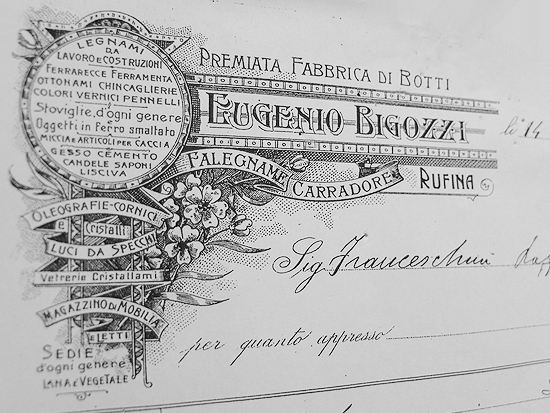 LEGNAMI
DA
LAVORO E COSTRUZIONI
FERRARECCE FERRAMENTA
OTTONAMI CHINCAGLIERIE
COLORI VERNICI PENNELLI
Stoviglie d'ogni genere
Oggetti in ferro smaltato
ARTICOLI PER CACCIA
GESSO CEMENTO
CANDELE SAPONI
LISCIVA
PREMIATA FABBRICA DI BOTTI
EUGENIO BIGOZZI
li 14
FALEGNAME
CARRADORE
RUFINA
OLEOGRAFIE-CORNICI
E
Cristalli
LUCI DA SPECCHI
Vetrerie Cristallami
MAGAZZINO DI MOBILIA
E LETTI
SEDIE
d'ogni genere
LANA E VEGETALE
Sig. Franceschini
per quanto appresso